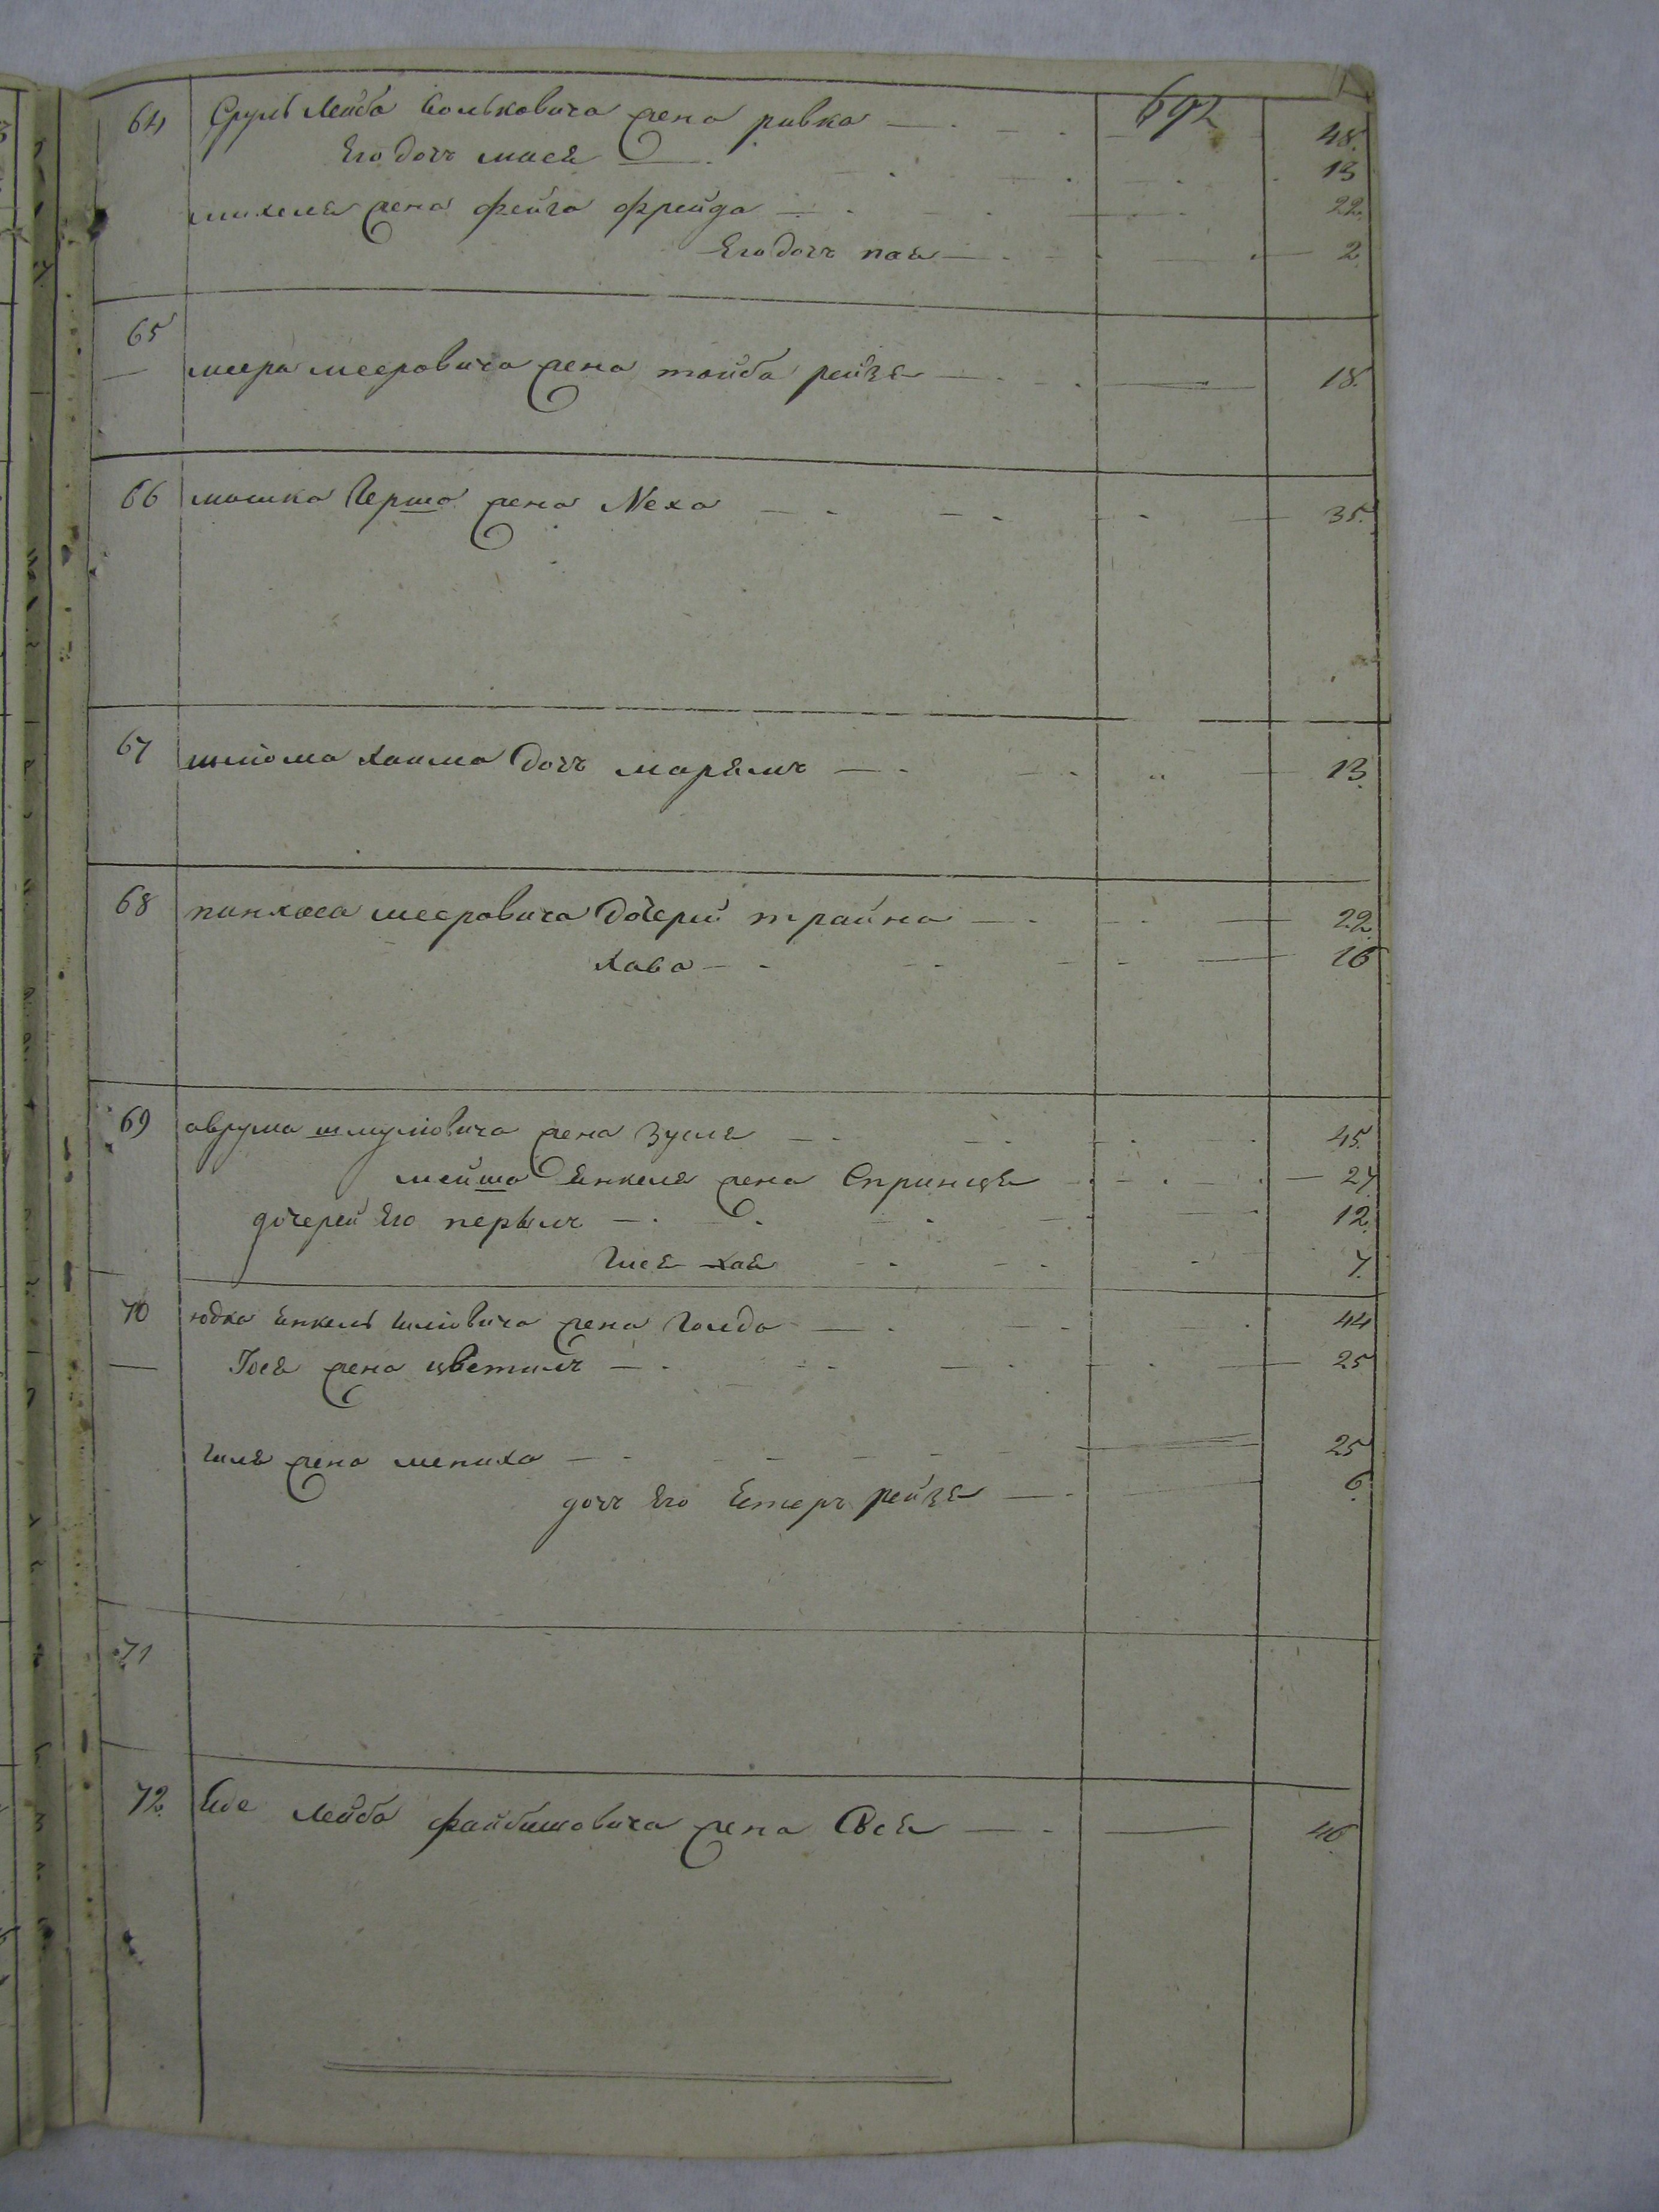 692
64 Сруль Лейба Вольковича жена ривка 48.
Его дочь мася 13
михеля жена фейга фрейда 22.
Его дочь пая 2
65
меера мееровича жена тойба рейзя 18.
66 мошка Герша жена Неха 35.
67 шліома хаима дочь марямъ 13.
68 пинхаса мееровича дочерей трайна 22.
хава 16
69 аврума шмуліовича жена зуся 45.
мейша янкеля жена Спринця 27
дочерей Его перлъ 12.
Гися хая 7.
70 юдка янкель Гиліовича жена Голда 44
Іося жена цветилъ 25
Гиля жена мениха 25
дочь Его Естеръ рейзя 6.
71
72. Лейба файбишовича жена Сося 46.